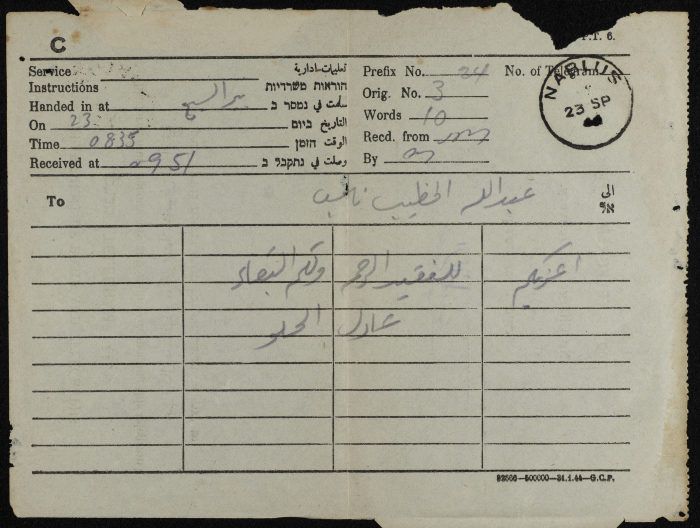 C
P.T. 6.
Service تعليمات ادارية
Instructions הוראות משרדיות
Handed in at بير السبع سلمت في נמסר ב
On 23 التاريخ ביום
Time 0835 الوقت הזמן
Received at 0951 وصلت في נתקבל ב
Prefix No. 24 No. of Telegram
Orig. No. 3
Words 10
Recd. from
By
NABLUS
23 SP
To عبدالله الخطيب نابلس الى
אל
اعزيكم للفقيد الرحمه ولكم البقاء
عادل الحلو
500000—31.1.44—G.C.P.